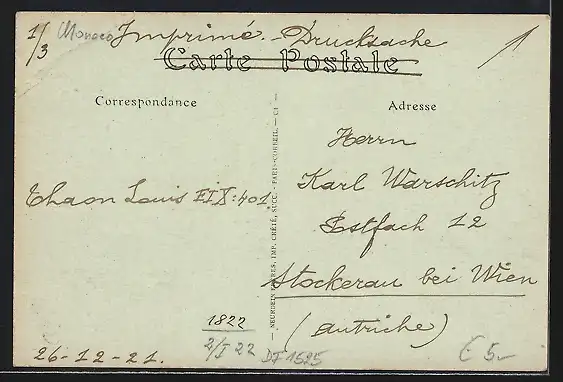 1/3 Monaco Imprimé. - Drucksache 1
Carte Postale
Correspondance
Adresse
Herrn
Karl Warschitz
Postfach 12
Stockerau bei Wien
(Autriche)
Thaon Louis FIX: 401
NEURDEIN FRÈRES, IMP. CRÉTÉ, SUCC. - PARIS-CORBEIL. — C1 —
1822
2/I 22
26-12-21.
DF 1525
€ 5.-